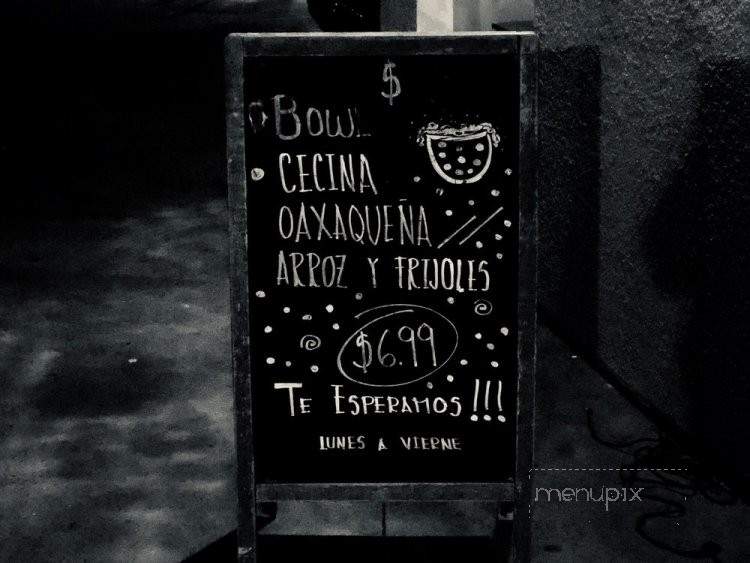 $
BOWL
CECINA
OAXAQUEÑA
ARROZ Y FRIJOLES
$6.99
TE ESPERAMOS!!!
LUNES A VIERNE
menupix